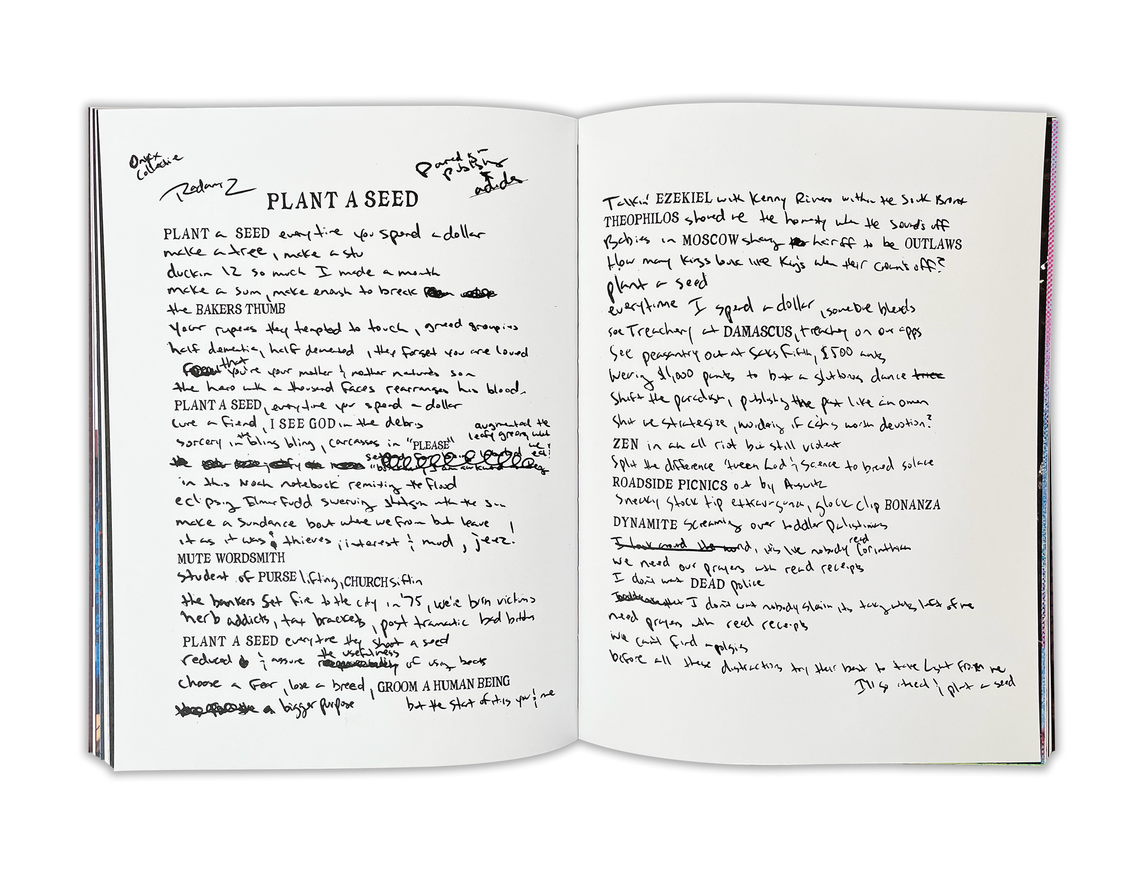 Onyx
Collective
PLANT A SEED
PLANT a SEED everytime you spend a dollar
make a tree, make a stu
duckin 12 so much I made a month
make a sum, make enough to break
the BAKERS THUMB
Your rupees they tempted to touch, greed groupies
half dementia, half demented, they forget you are loved
that you're your mother & mother nature's son
the hero with a thousand faces rearranges his blood.
PLANT A SEED, everytime you spend a dollar
cure a fiend, I SEE GOD in the debris
augmented the
leafy greens what
sorcery in the bling bling, carcasses in "PLEASE"
we eat!
in this Noah notebook remixing the flood
eclipsing Elmer Fudd swerving shotgun with the sun
make a sundance bout where we from but leave
it as it was & thieves, interest & mud, jeez.
MUTE WORDSMITH
student of PURSE lifting, CHURCH siftin
the bankers set fire to the city in '75, we're burn victims
herb addicts, tax brackets, post tramatic bad habits
PLANT A SEED everytime they shoot a seed
the usefulness
reduced & assure of using beats
choose a for, lose a breed, GROOM A HUMAN BEING
a bigger purpose but the start of it is you & me
Talkin' EZEKIEL with Kenny Rivero within the South Bronx
THEOPHILOS showed me the honesty when the sound's off
Babies in MOSCOW shaving hair off to be OUTLAWS
How many Kings look like Kings when their crown's off?
plant a seed
everytime I spend a dollar, somebody bleeds
see Treachery at DAMASCUS, treachery on our apps
See peasantry out at Saks Fifth, $500 
wearing $1,000 pants to but a gluttonous dance
Shift the paradigm, publishing the past like an omen
Shit we strategize, wondering if cash's worth devotion?
ZEN in an all riot but still violent
Split the difference 'tween God & Science to breed solace
ROADSIDE PICNICS out by
Sneaky stock tip extravaganza, glock clip BONANZA
DYNAMITE screaming over toddler Palestinians
I look around the world, it's like nobody read Corinthian
we need our prayers with read receipts
I don't want DEAD police
I don't want nobody slain its taking whats left of me
need prayers with read receipts
we can't find apologies
before all these distractions try their best to take Light from me
I'll go ahead & plant a seed